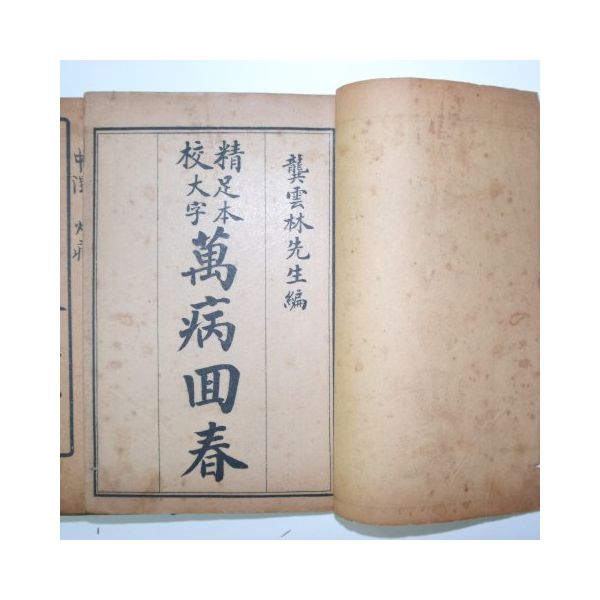 龔雲林先生編
精校
足本
大字
萬病回春